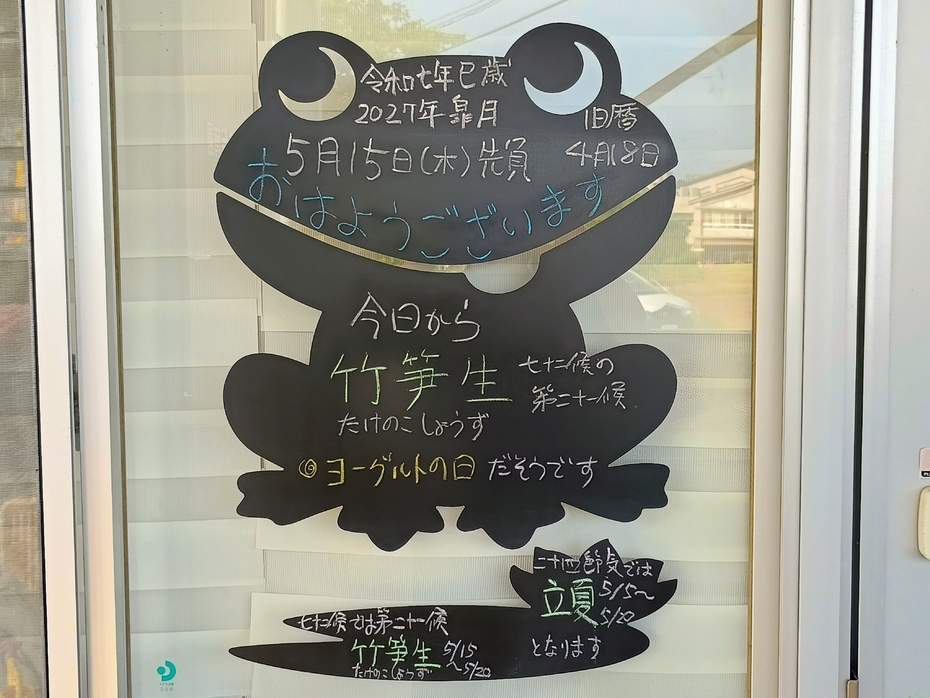 令和七年巳歳
2027年皐月
旧暦
5月15日(木)先負
4月18日
おはようございます
今日から
竹笋生
たけのこしょうず
七十二候の
第二十一候
ヨーグルトの日だそうです
二十四節気では
立夏 5/5〜
5/20
となります
七十二候では第二十一候
竹笋生 5/15
〜5/20
たけのこしょうず